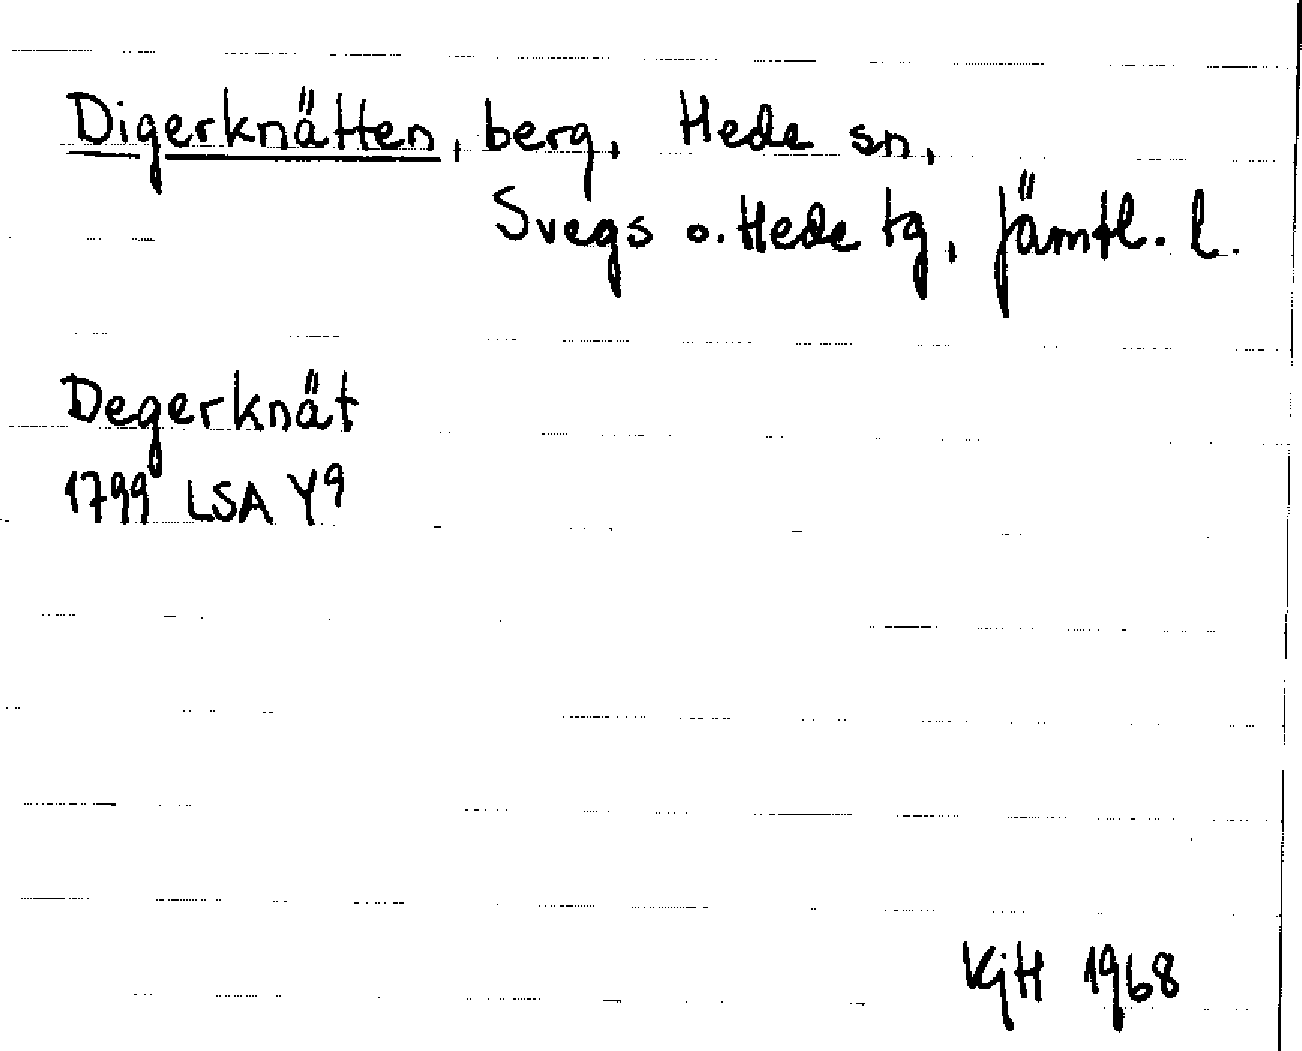 Digerknätten, berg, Hede sn,
Svegs o. Hede tg, Jämtl. l.
Degerknät
1799 LSA Y9
KjH 1968